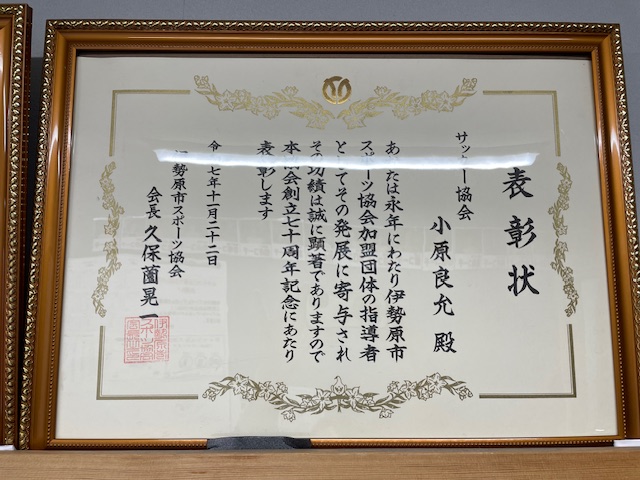 表彰状
サッカー協会
小原良允 殿
あなたは永年にわたり伊勢原市
スポーツ協会加盟団体の指導者
としてその発展に寄与され
その功績は誠に顕著でありますので
本協会創立七十周年記念にあたり
表彰します
令和七年十一月二十二日
伊勢原市スポーツ協会
会長 久保薗晃一